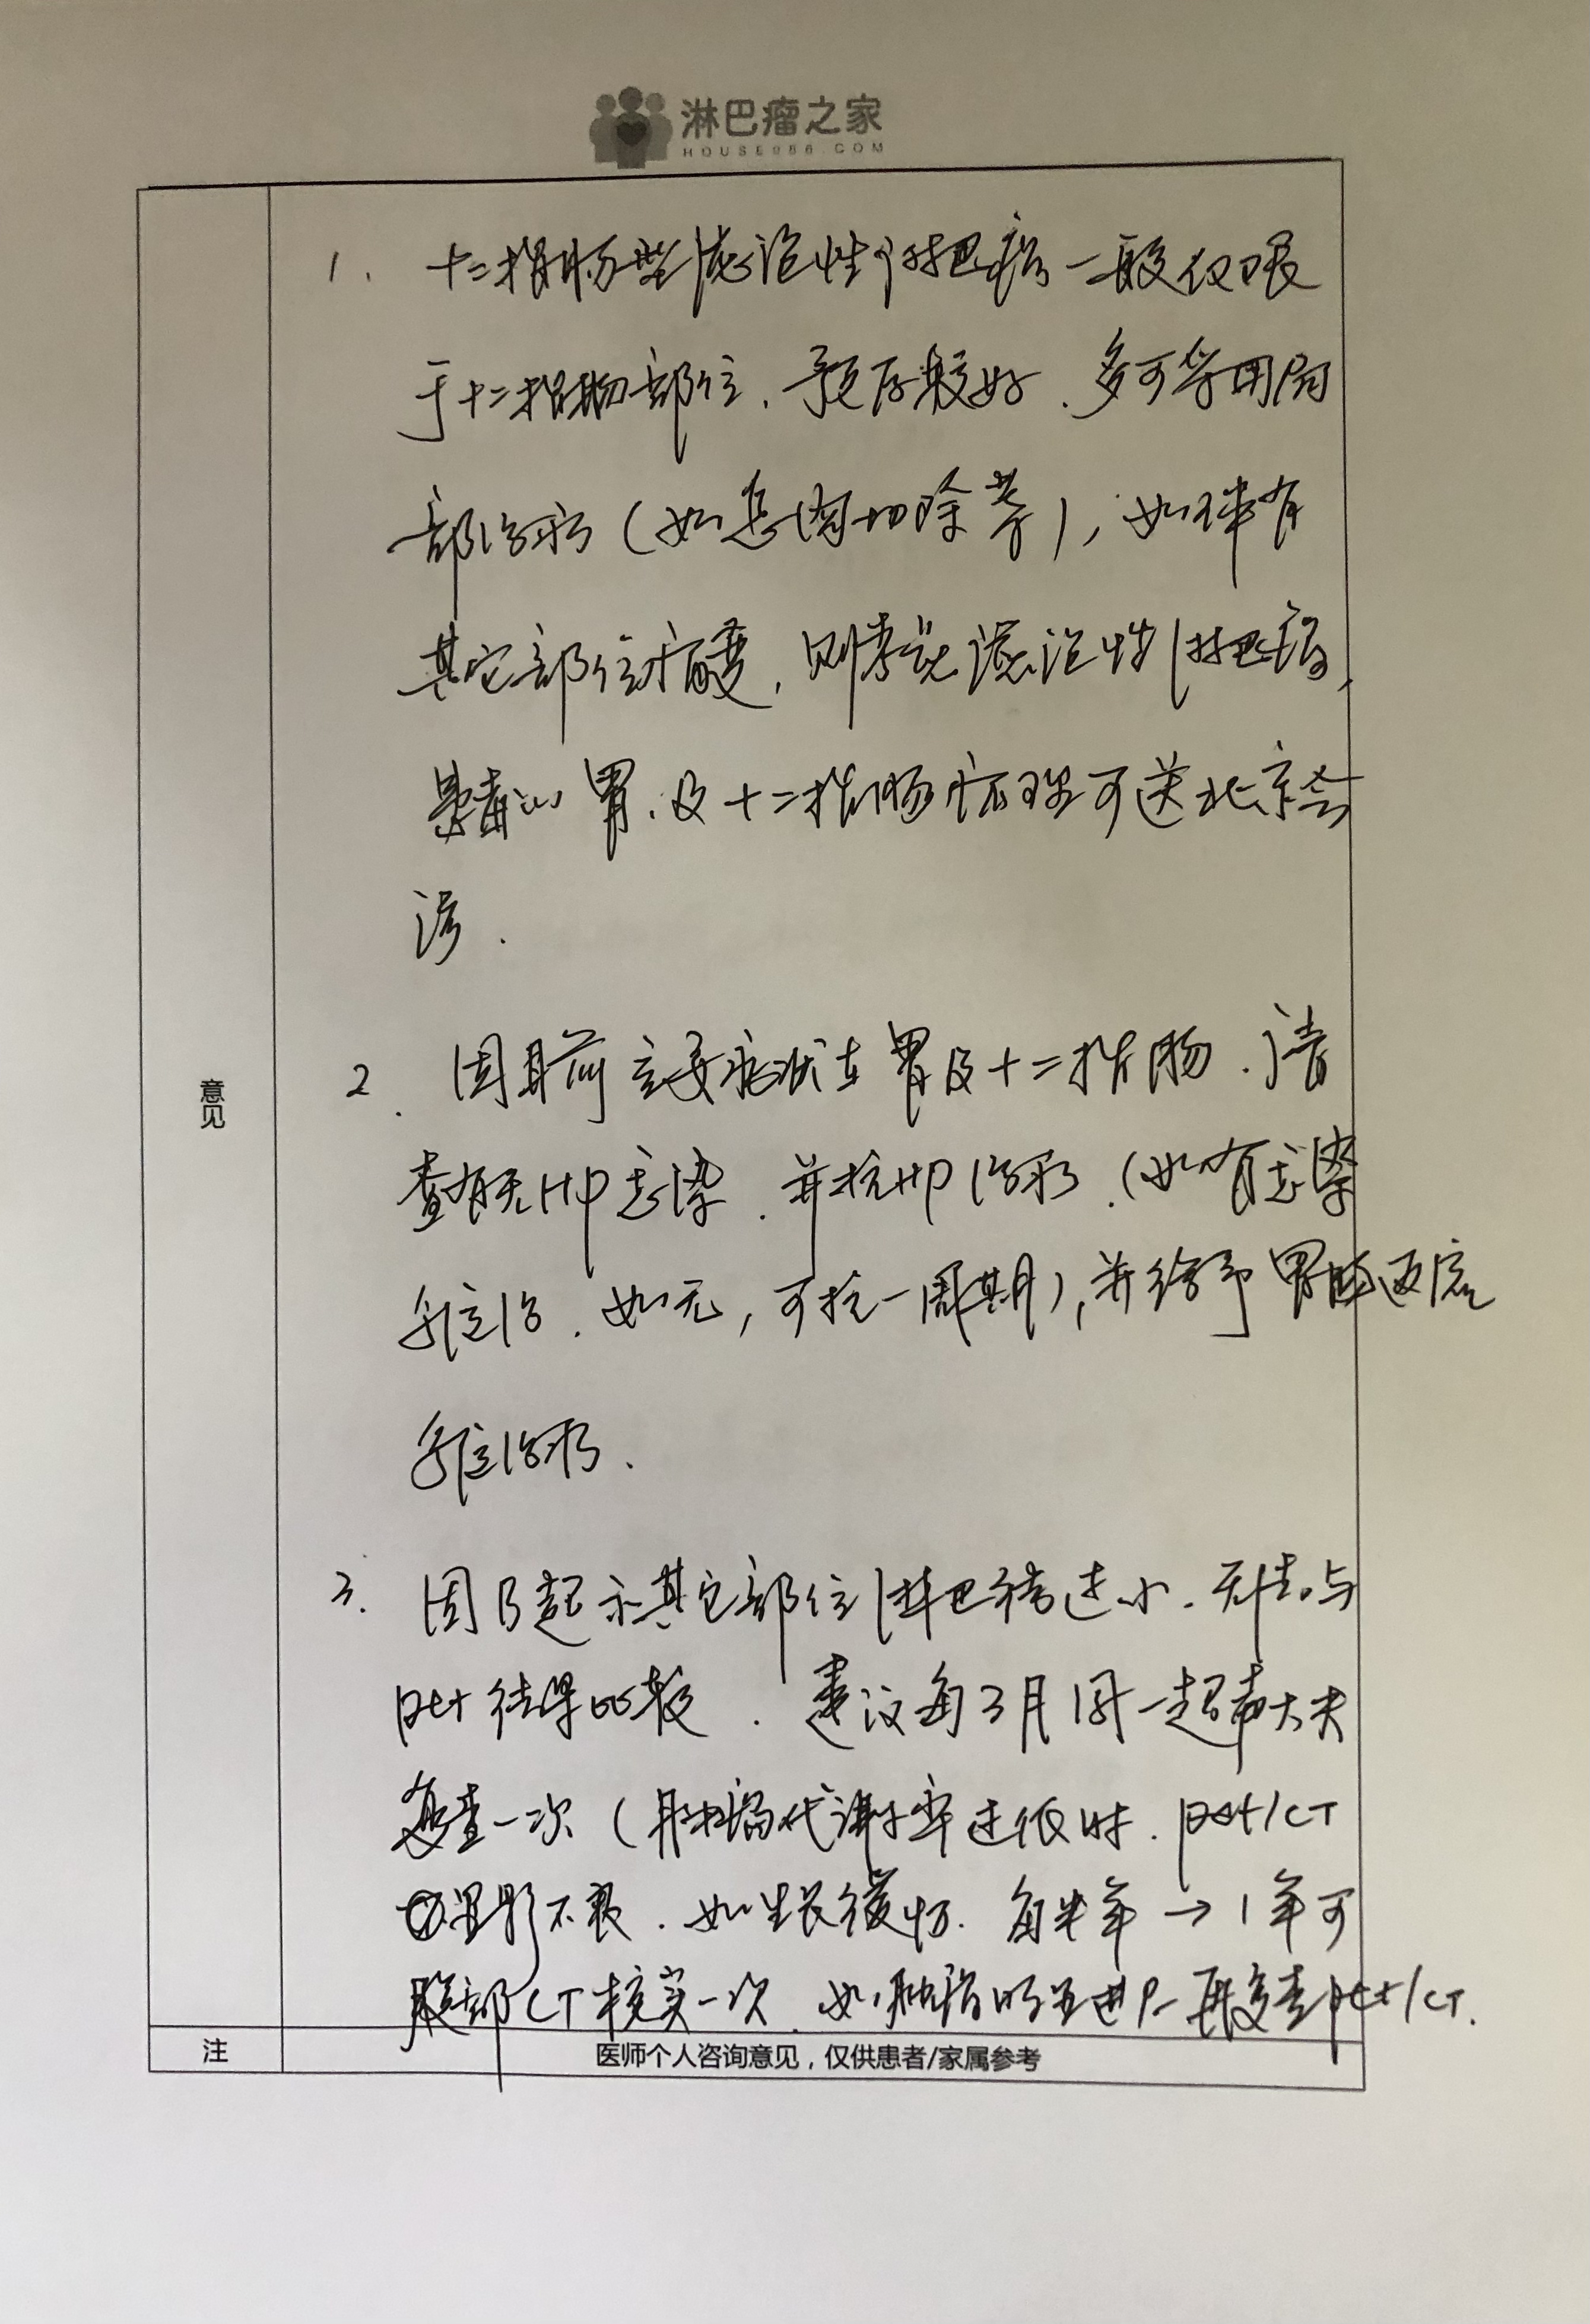 淋巴瘤之家
HOUSE086.COM
1. 十二指肠型滤泡性淋巴瘤一般仅限
于十二指肠部位.预后较好.多可采用局
部治疗(如息肉切除等),如伴有
其它部位病变,则考虑滤泡性淋巴瘤,
胃.及十二指肠病理可送北京会
诊.
意见
2. 因目前主要症状在胃及十二指肠.请
查有无HP感染.并抗HP治疗.(如有感染
如无,可抗一周期),并给予胃肠
治疗.
3. 因B超示其它部位淋巴结过小.无法与
pet结果比较.建议每3月同一超声大夫
复查一次(肿瘤代谢率过低时.pet/CT
显影不良.如生长缓慢.每半年→1年可
腹部CT核实一次.如肿瘤明显进产再复查pet/CT.
注 医师个人咨询意见,仅供患者/家属参考